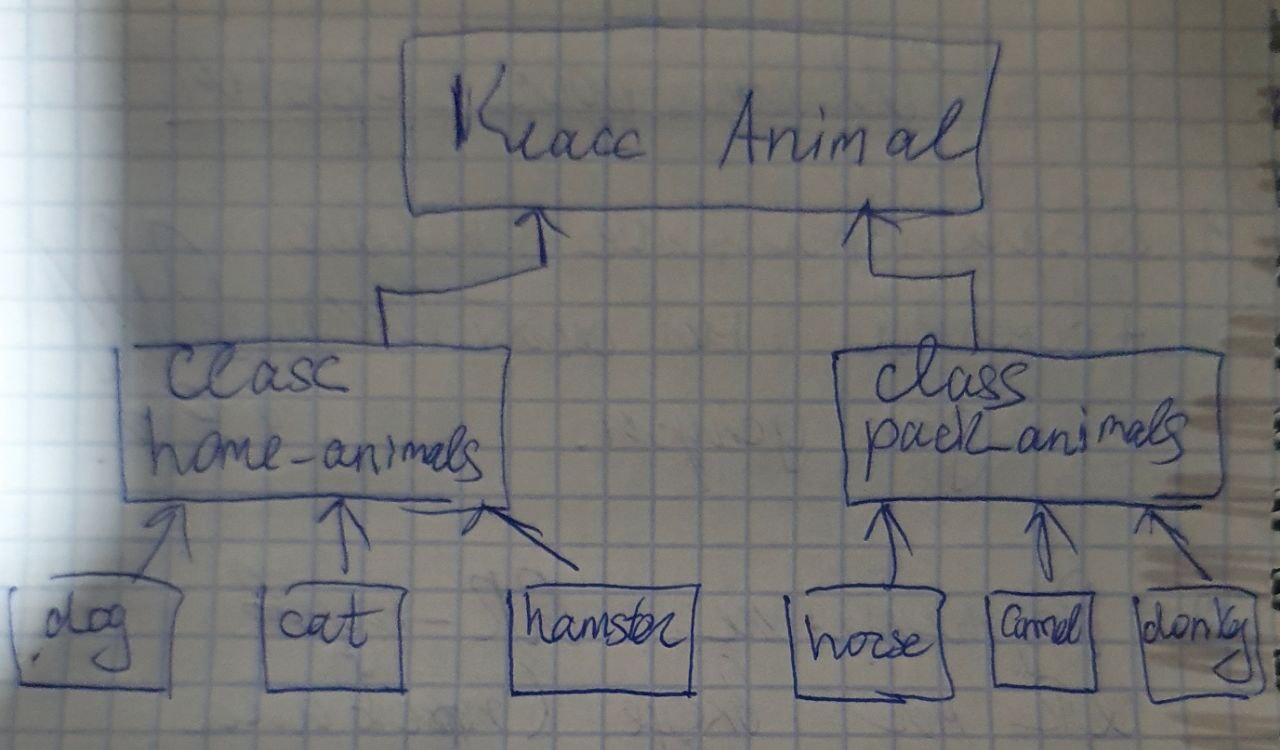 Класс Animal
class
home-animals
class
pack_animals
dog
cat
hamster
horse
Camel
donky